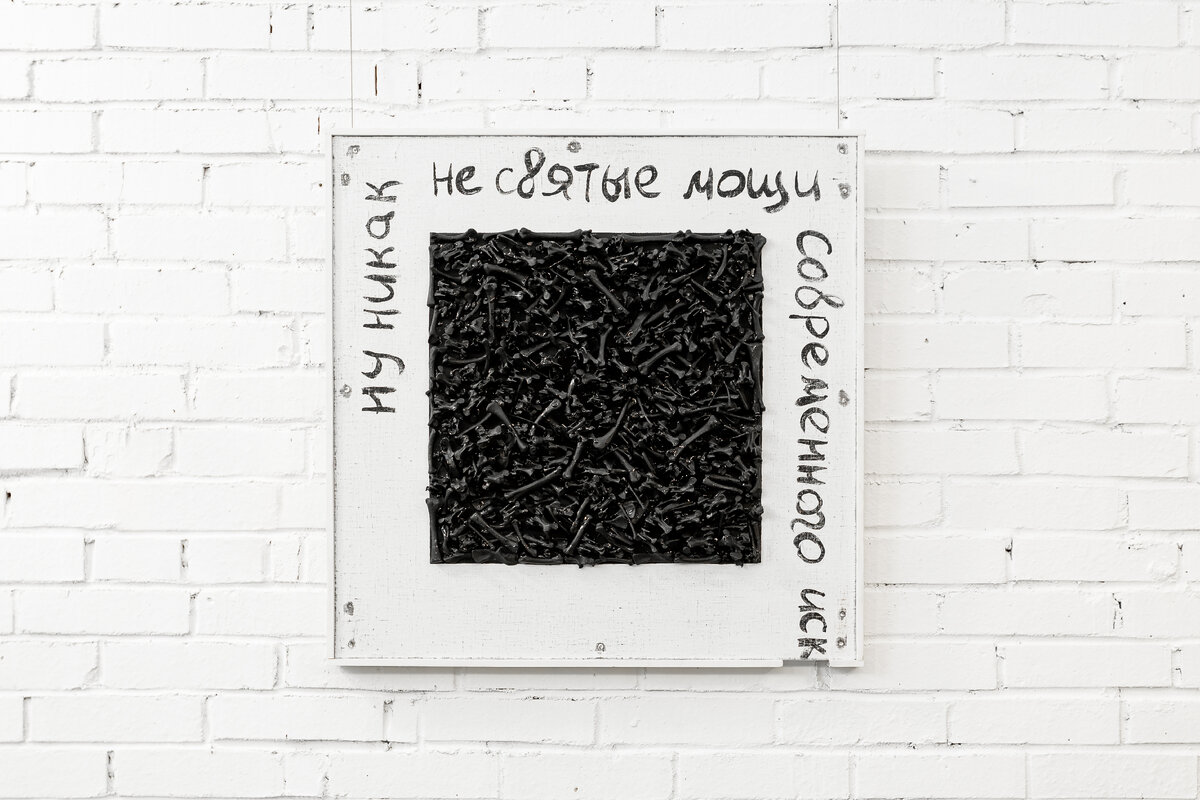 ну никак
не святые мощи
современного иск